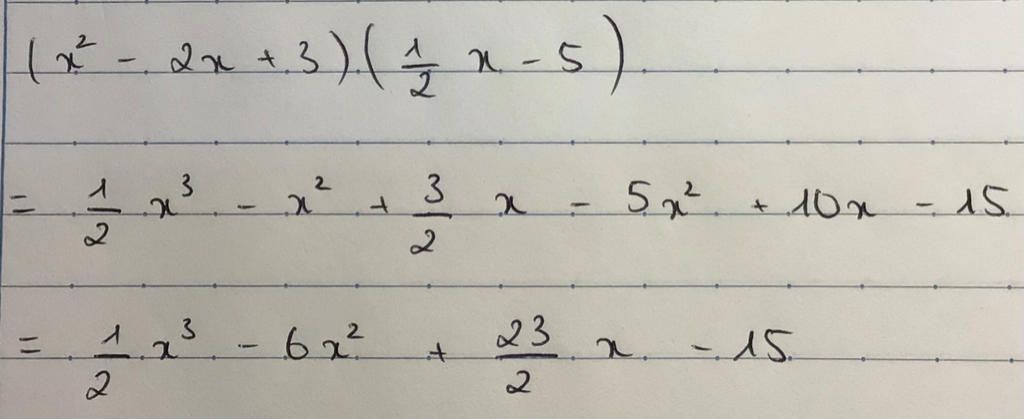 (x² - 2x + 3)(1/2 x - 5)
= 1/2 x³ - x² + 3/2 x - 5x² + 10x - 15
= 1/2 x³ - 6x² + 23/2 x - 15